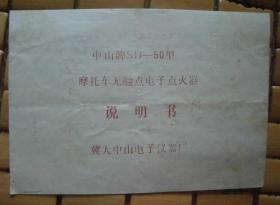 中山牌SD—50型
摩托车无触点电子点火器
说明书
冀大中山电子仪器厂